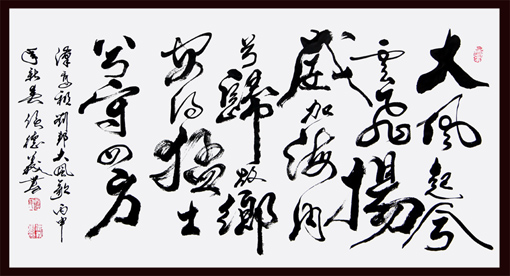 大風起兮
雲飛揚
威加海内
兮歸故鄉
安得猛士
兮守四方
漢高祖劉邦大風歌丙申
年秋德義書